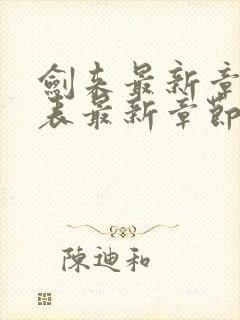 劍來最新章
表最新章節
陳迪和